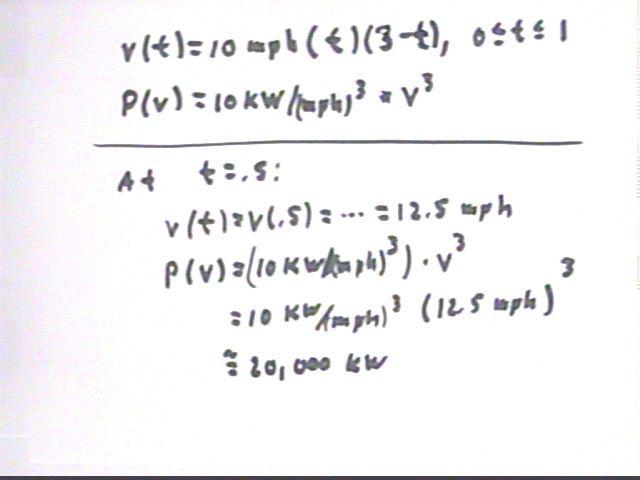 v(t)=10 mph(t)(3-t), 0≤t≤1
P(v)=10KW/(mph)³ * v³
At t=.5:
v(t)=v(.5)=...=12.5 mph
P(v)=(10KW/(mph)³)·v³
=10 KW/(mph)³ (12.5 mph)³
≅20,000 KW